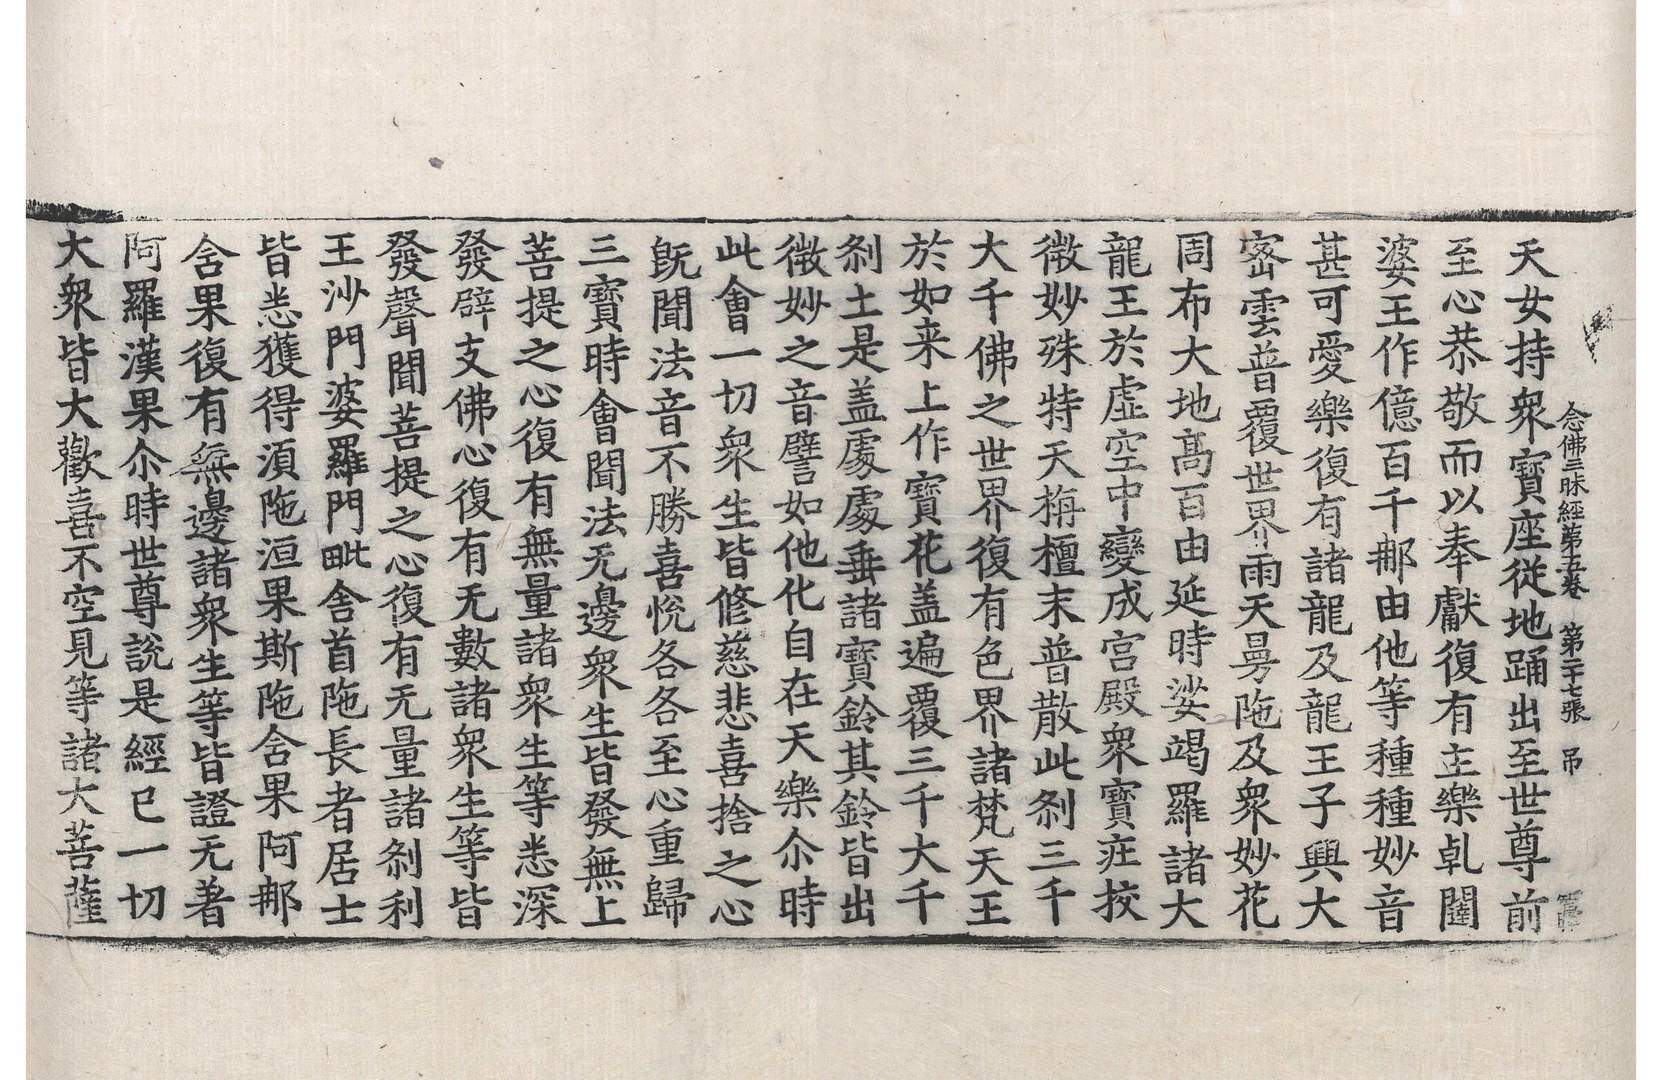 念佛三昧經第五卷 第二十七張 吊
天女持衆寶座從地踊出至世尊前
至心恭敬而以奉獻復有主樂乹闥
婆王作億百千𨙻由他等種種妙音
甚可愛樂復有諸龍及龍王子興大
宻雲普覆世界雨天曼陁及衆妙花
周布大地髙百由延時娑竭羅諸大
龍王於虛空中變成宫殿衆寶㽵挍
微妙殊特天栴檀末普散此刹三千
大千佛之世界復有色界諸梵天王
於如来上作寶花盖遍覆三千大千
刹土是盖處處垂諸寶鈴其鈴皆出
微妙之音譬如他化自在天樂尒時
此會一切衆生皆修慈悲喜捨之心
旣聞法音不勝喜悅各各至心重歸
三寶時會聞法无邊衆生皆發無上
菩提之心復有無量諸衆生等悉深
發辟支佛心復有无數諸衆生等皆
發聲聞菩提之心復有无量諸刹利
王沙門婆羅門毗舍首陁長者居士
皆悉獲得湏陁洹果斯陁含果阿𨙻
含果復有無邊諸衆生等皆證无著
阿羅漢果尒時世尊說是經已一切
大衆皆大歡喜不空見等諸大菩薩